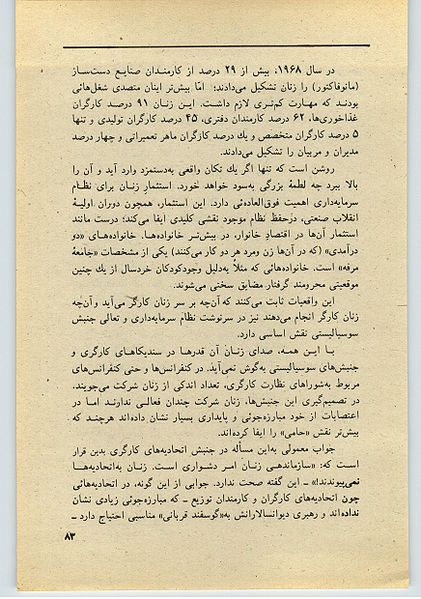 در سال ۱۹۶۸، بیش از ۲۹ درصد از کارمندان صنایع دست‌ساز
(مانوفاکتور) را زنان تشکیل می‌دادند؛ امّا بیش‌تر اینان متصدی شغل‌هائی
بودند که مهارت کم‌تری لازم داشت. این زنان ۹۱ درصد کارگران
غذاخوری‌ها، ۶۲ درصد کارمندان دفتری، ۴۵ درصد کارگران تولیدی و تنها
۵ درصد کارگران متخصص و یك درصد کارگران ماهر تعمیراتی و چهار درصد
مدیران و مربیان را تشکیل می‌دادند.
روشن است که تنها اگر یك تکان واقعی به‌دستمزد وارد آید و آن را
بالا ببرد چه لطمهٔ بزرگی به‌سود خواهد خورد. استثمار زنان برای نظام
سرمایه‌داری اهمیت فوق‌العاده‌ئی دارد. این استثمار، همچون دوران اولیهٔ
انقلاب صنعتی، درحفظ نظام موجود نقشی کلیدی ایفا می‌کند؛ درست مانند
استثمار آن‌ها در اقتصادِ خانوار، در بیش‌تر خانواده‌ها. خانواده‌های «دو
درآمدی» (که در آن‌ها زن ومرد هر دو کار می‌کنند) یکی از مشخصات «جامعهٔ
مرفه» است. خانواده‌هائی که مثلاً به‌دلیل وجودکودکان خردسال از یك چنین
موقعیتی محرومند گرفتار مضایق سختی می‌شوند.
این واقعیات ثابت می‌کنند که آن‌چه بر سر زنان کارگر می‌آید وآن‌چه
زنان کارگر انجام می‌دهند نیز در سرنوشت نظام سرمایه‌داری و تعالی جنبش
سوسیالیستی نقش اساسی دارد.
با این همه، صدای زنان آن قدرها در سندیکاهای کارگری و
جنبش‌های سوسیالیستی به‌گوش نمی‌آید. در کنفرانس‌ها و حتی کنفرانس‌های
مربوط به‌شوراهای نظارت کارگری، تعداد اندکی از زنان شرکت می‌جویند.
در تصمیم‌گیری این جنبش‌ها، زنان شرکت چندان فعالی ندارند اما در
اعتصابات از خود مبارزه‌جوئی و پایداری بسیار نشان داده‌اند هرچند که
بیش‌تر نقش «حامی» را ایفا کرده‌اند.
جواب معمولی به‌این مسأله در جنبش اتحادیه‌های کارگری بدین قرار
است که: «سازماندهی زنان امر دشواری است. زنان به‌اتحادیه‌ها
نمی‌پیوندند!» ـ این گفته صحت ندارد. جوابی از این گونه، در اتحادیه‌هائی
چون اتحادیه‌های کارگران و کارمندان توزیع ـ که مبارزه‌جوئی زیادی نشان
نداده‌اند و رهبری دیوانسالارانش به«گوسفند قربانی» مناسبی احتیاج دارد ـ
۸۳